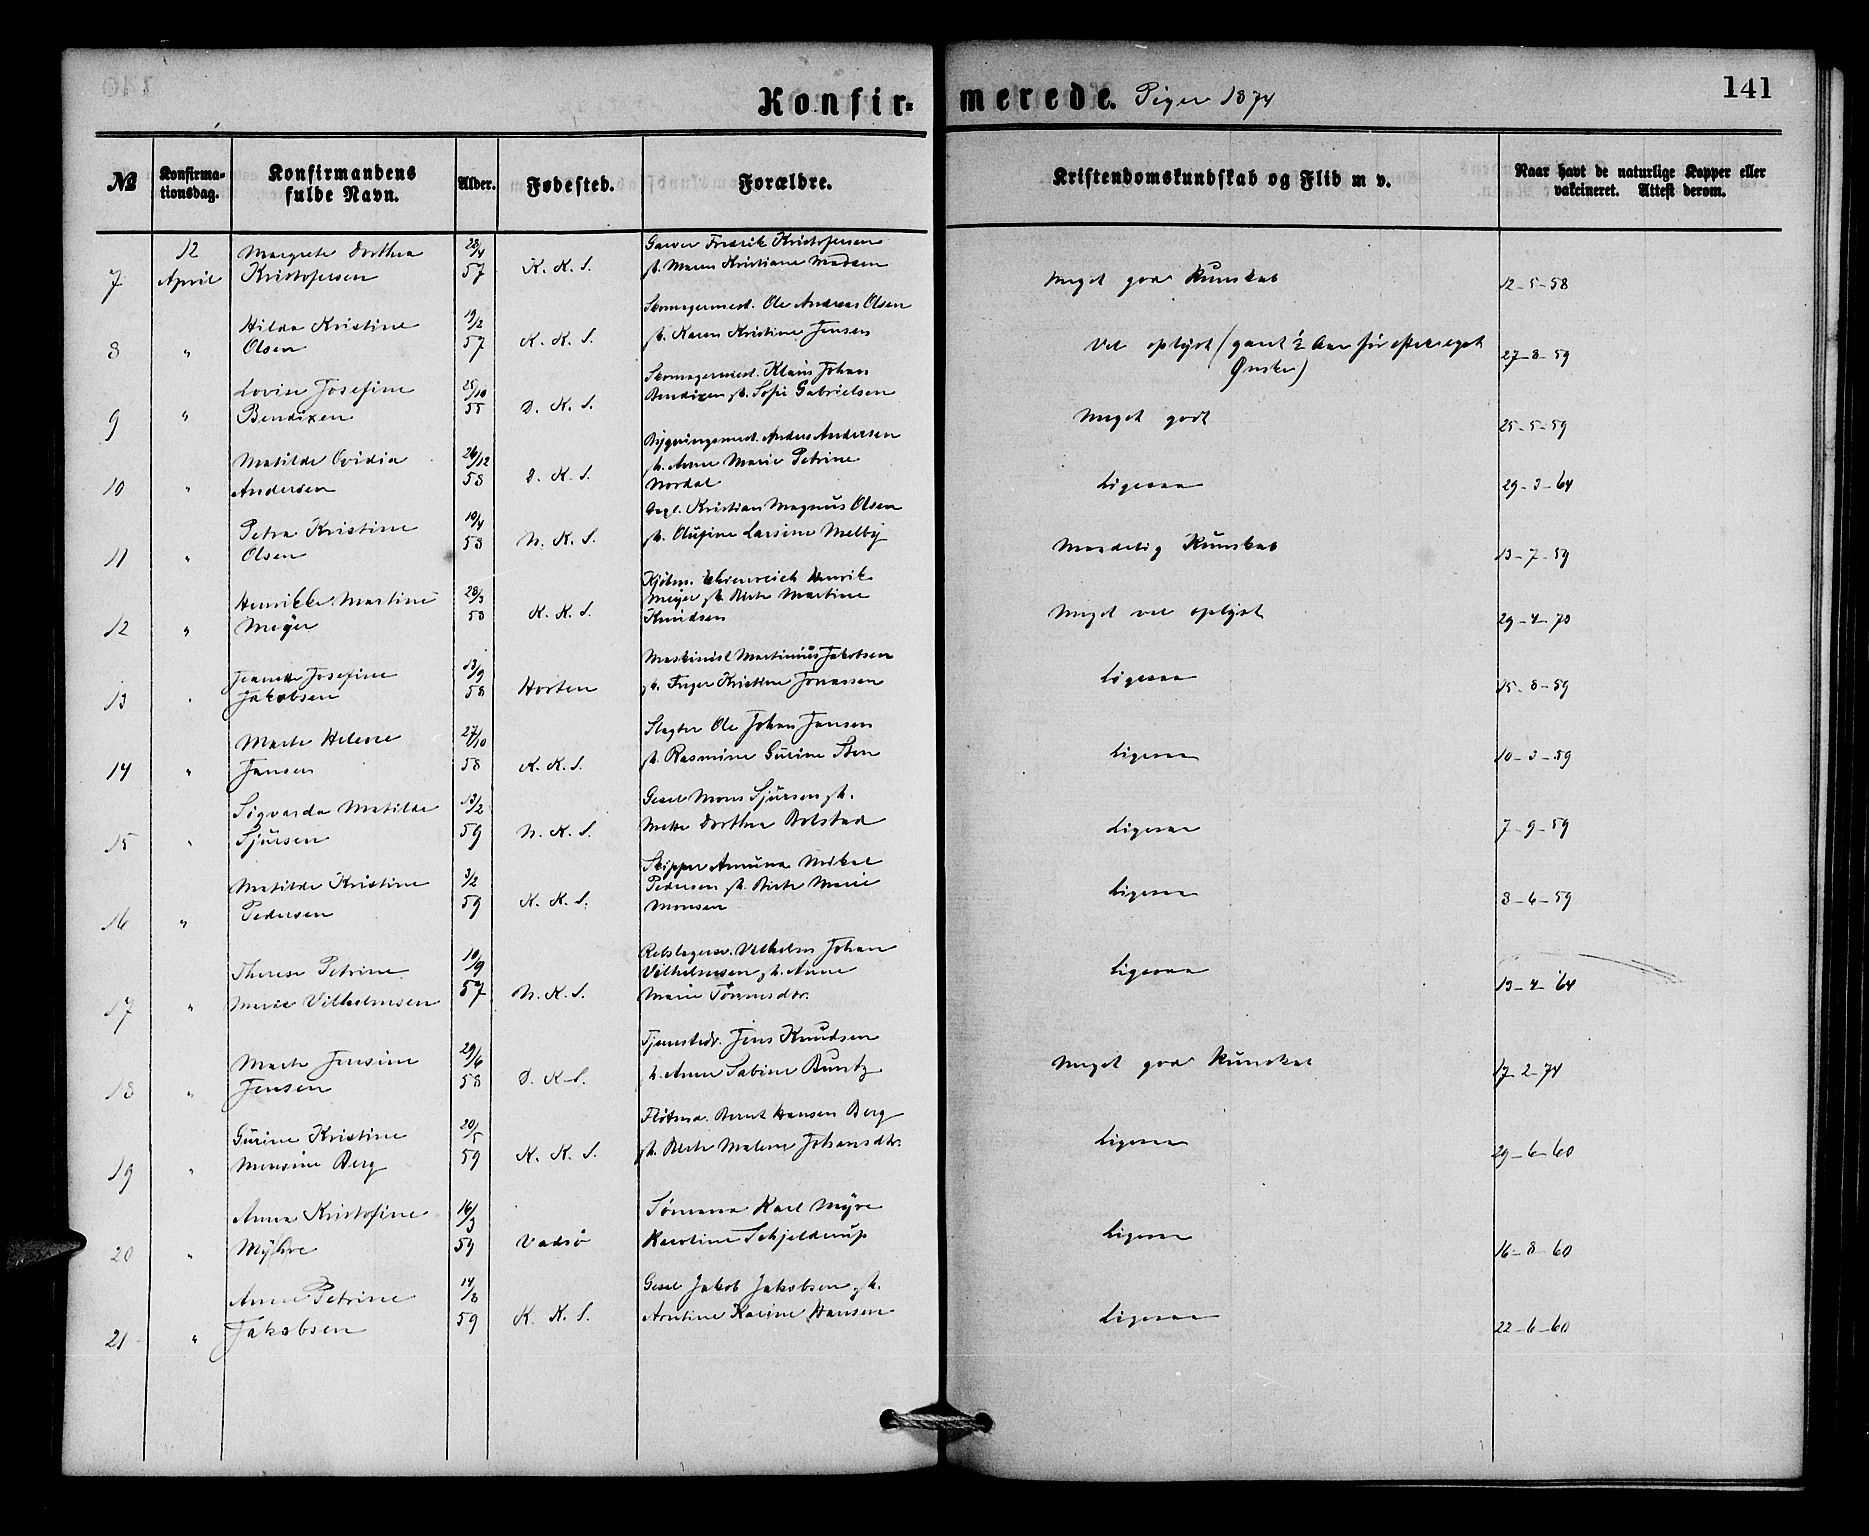 141
Konfirmerede. Piger 1874
№
Konfirmationsdag.
Konfirmandens fulde Navn.
Alder.
Fødested.
Forældre.
Kristendomskundskab og Flid m v.
Naar havt de naturlige Kopper eller vakcineret. Attest derom.
7
12 April
Margrete Dorthea Kristofersen
28/4 57
K. K. S.
Garver Fredrik Kristofersen
h. Maren Kristiane Madsen
Meget god Kunskab
12-5-58
8
"
Hilda Kristine Olsen
19/2 57
K. K. S.
Skomagermest. Ole Andreas Olsen
h. Karen Kristine Jensen
Vel oplyst (gaaet ½ Aar før efter eget Ønske)
27-8-59
9
"
Lovise Josefine Bendixen
25/10 58
D. K. S.
Skomagermest. Klaus Johan
Bendixen h. Sofie Gabrielsen
Meget godt
25-5-59
10
"
Matilde Ovidia Andersen
26/12 58
D. K. S.
Bygningsmest. Anders Andersen
h. Anne Marie Petrine
Nordal
Ligesaa
29-3-64
11
"
Petra Kristine Olsen
10/4 58
N. K. S.
Kristian Magnus Olsen
h. Olufine Larsine Melby
Maadelig Kunskab
13-7-59
12
"
Henrikke Martine Meyer
28/3 58
K. K. S.
Kjøbm. Ehrenreich Henrik
Meyer h. Berte Martine
Knudsen
Meget vel oplyst
29-4-73
13
"
Jeanette Josefine Jakobsen
13/9 58
Horten
Maskinist Martinius Jakobsen
h. Inger Kristine Jonassen
Ligesaa
15-8-59
14
"
Marte Helene Jansen
27/10 58
K. K. S.
Slagter Ole Johan Jansen
h. Rasmine Gurine Sten
Ligesaa
10-3-59
15
"
Sigvarda Matilde Sjursen
13/2 59
N. K. S.
Gesel Mons Sjursen h.
Mette Dorthea Bolstad
Ligesaa
7-9-59
16
"
Matilde Kristine Pedersen
3/2 59
K. K. S.
Skipper Amund Mikal
Pedersen h. Berte Marie
Monsen
Ligesaa
8-6-59
17
"
Therese Petrine Marie Vilhelmsen
10/9 57
N. K. S.
Rebslagersv. Vilhelm Johan
Vilhelmsen h. Anne
Marie Tønnesdtr.
Ligesaa
13-4-64
18
"
Marte Jensine Jensen
29/6 58
D. K. S.
Tjenestedr. Jens Knudsen
h. Anne Sabine Buntz
Meget god Kunskab
17-2-74
19
"
Gurine Kristine Monsine Berg
20/5 59
K. K. S.
Fløtmd. Bernt Hansen Berg
h. Berte Malene Johansdtr.
Ligesaa
29-6-60
20
"
Anna Kristofine Myhre
16/3 59
Vadsø
Sømand Karl Myre
Karoline Schjelderup
Ligesaa
16-8-60
21
"
Anne Petrine Jakobsen
14/8 59
K. K. S.
Gesel Jakob Jakobsen h.
Karine Hansen
Ligesaa
22-6-60